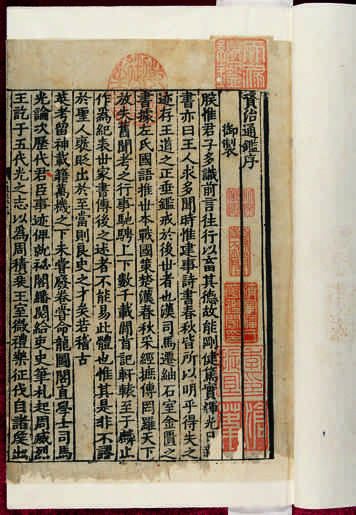 資治通鑑序
御製
朕惟君子多識前言往行以畜其德故能剛健篤實輝光日
書亦曰王人求多聞時惟建事詩書春秋皆所以明乎得失之
迹存王道之正垂鑑戒於後世者也漢司馬遷紬石室金匱之
書據左氏國語推世本戰國策楚漢春秋采經摭傳罔羅天下
放失舊聞考之行事馳騁上下數千載間首記軒轅至于麟止
作為紀表世家書傳後之述者不能易此體也惟其是非不謬
於聖人褒貶出於至當則良史之才矣若稽古
英考留神載籍萬機之下未嘗廢卷嘗命龍圖閣直學士司馬
光論次歷代君臣事迹俾就祕閣繙閱給吏史筆札起周威烈
王訖于五代光之志以為周積衰王室微禮樂征伐自諸侯出